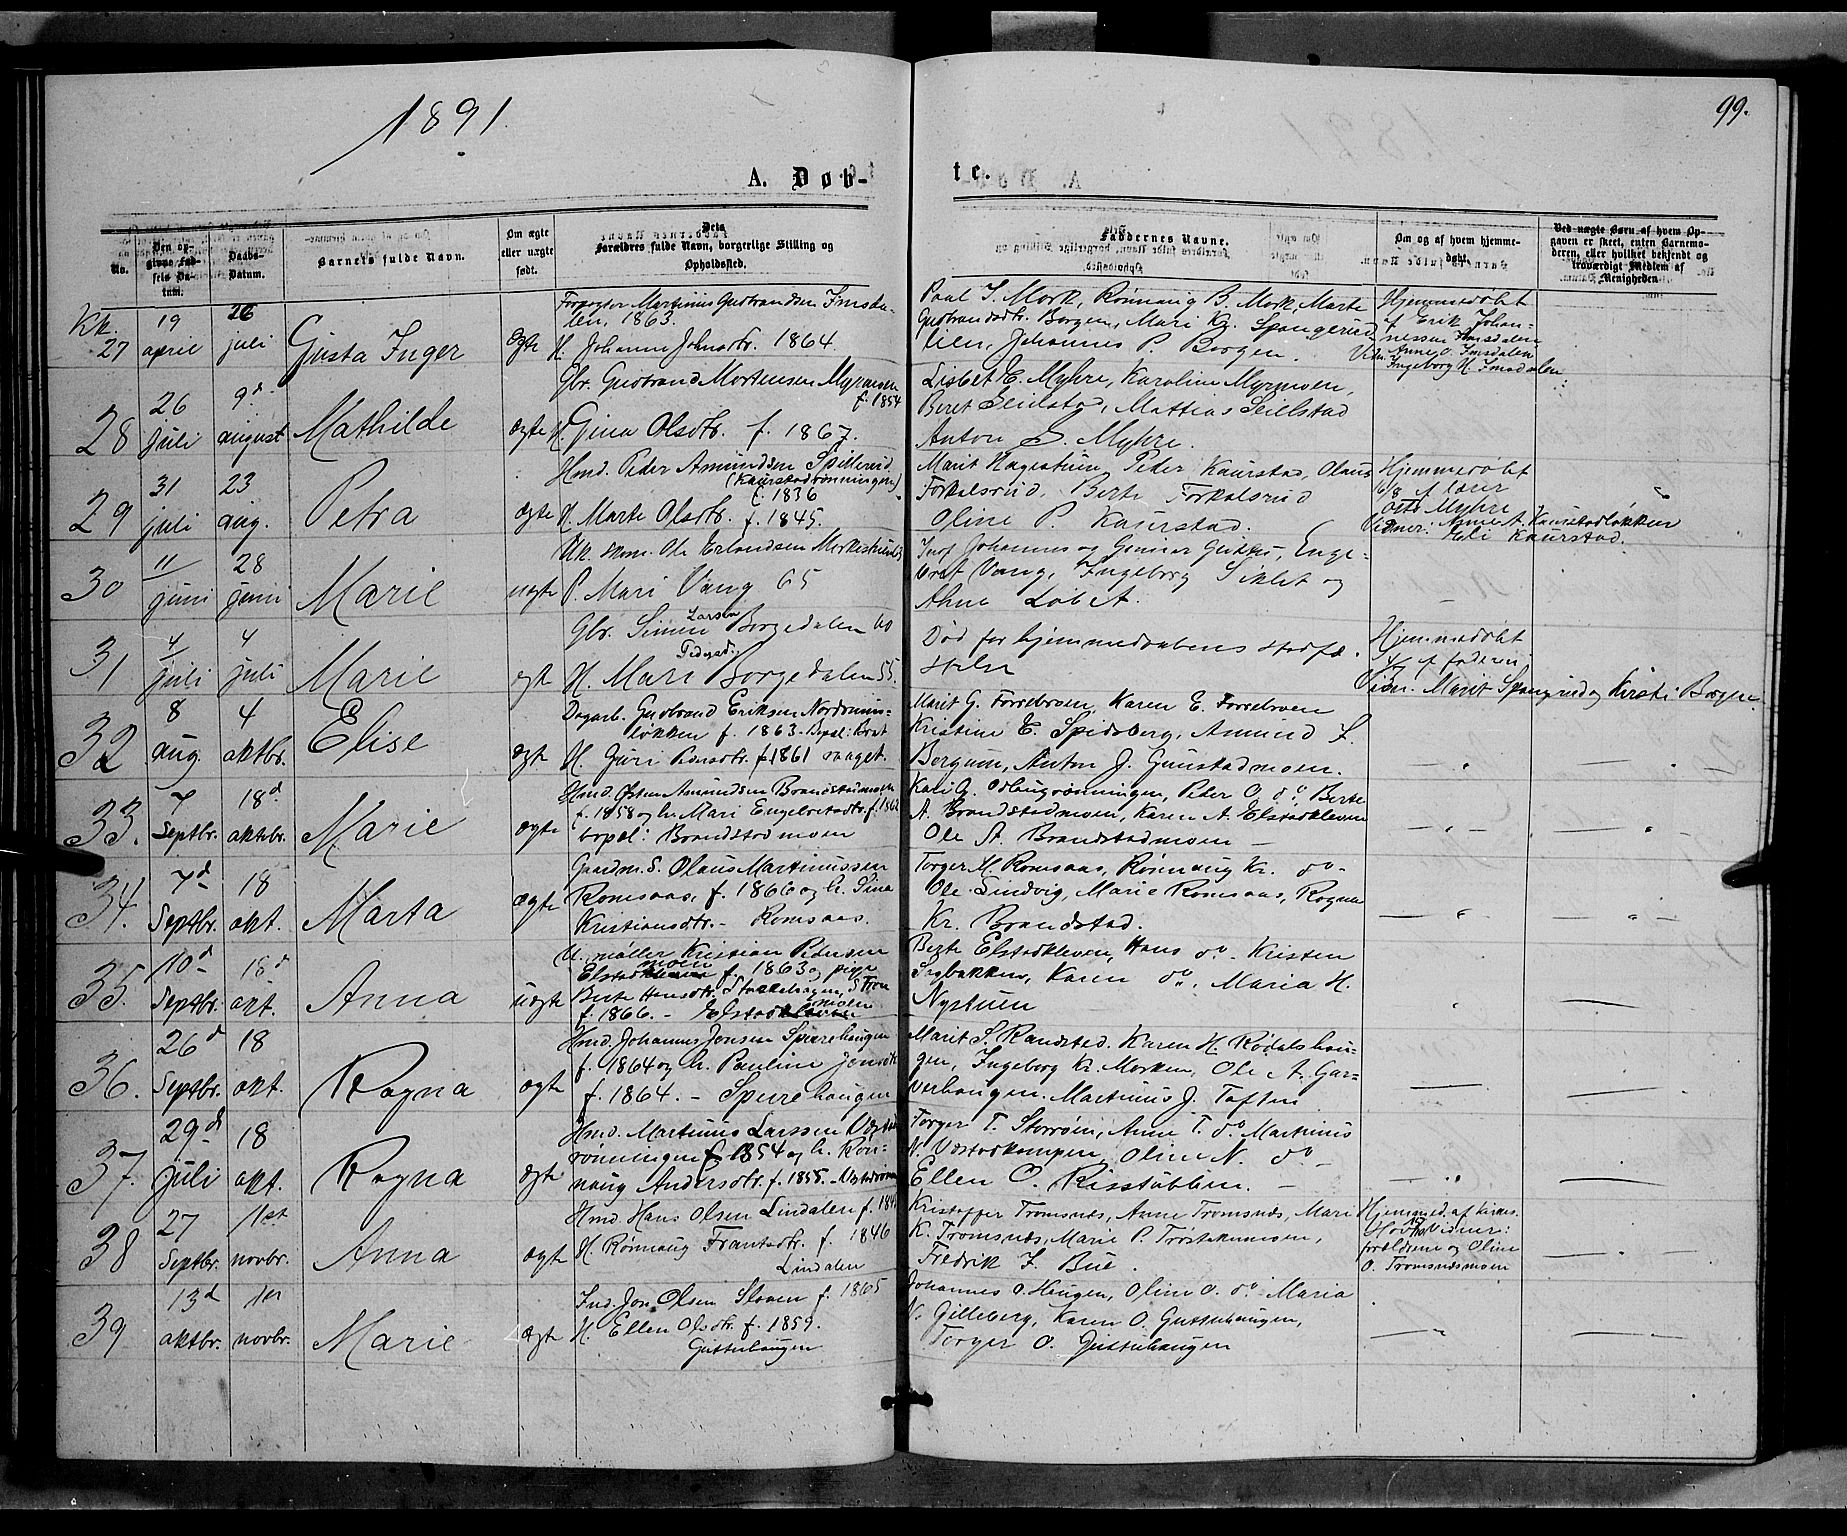 1891.
99.
A. Døb-
te.
No.
Den opgivne Fødsels Datum.
Daabs-Datum.
Barnets fulde Navn.
Om ægte eller uægte født.
Forældres fulde Navn, borgerlige Stilling og Opholdssted.
Faddernes Navne.
Om og af hvem hjemmedøbt.
Ved uægte Børn af hvem Opgaven er skeet, enten Barnemoderen, eller hvilket bekjendt og troværdigt Medlem af Menigheden.
27 19 april 26 juli Gusta Inger ægte
Martinus Gudbrandsen Imsdalen, 1863.
H. Johanne Johnsdtr. 1864.
Paul J. Mork, Rønnaug B. Mork, Marte
Gudbrandsdtr. Borgen, Mari Kr. Spangerud
lien, Johannes P. Borgen.
Hjemmedøbt
f Erik Johannessen Imsdalen
Vidn. Anne O. Imsdalen
Ingeborg H. Imsdalen
28 26 juli 9d august Mathilde ægte
Gbr. Gudbrand Mortensen Myrmoen
f. 1854
H. Gina Olsdtr. f. 1867.
Lisbet E. Myhre, Karoline Myrmoen,
Beret Seielstad, Mattias Seielstad
Anton S. Myhre.
29 31 juli 23 aug. Petra ægte
Hmd. Peder Amundsen Spillerud
(Kaurstadrønningen)
f. 1836
H. Marte Olsdtr. f. 1845.
Marit Hagestuen, Peder Kaurstad, Olaus
Forkalsrud, Berte Forkalsrud
Oline P. Kaurstad.
Hjemmedøbt
16/8 f lærer
Myhre
Vidner: Anne A. Kaurstadløkken
Kaurstad.
30 11 juni 28 juni Marie uægte
Ole Erlandsen
P. Mari Vang 65
Johannes og Gunnar
Vang, Ingeborg Siklet og
Løbet.
31 4 juli 4 juli Marie ægte
Gbr. Simen Larsen Borgedalen 60
H. Mari Pedersd. Borgedalen 55.
Død før hjemmedaabens stadfæ-
stelse
Hjemmedøbt
f faderen
Vidn. Marit Spangrud og Kirsti Borgen.
32 8 aug. 4 oktbr. Elise ægte
Dagarb. Gudbrand Eriksen
løkken f. 1863.
H. f. 1861
Marit G. Forrebroen, Karen E. Forrebroen
Kristine E. Spidsberg, Amund L.
Bergum, Anton J. Gunstadmoen.
33. 7 Septbr. 18d oktbr. Marie ægte
Hmd. Østen Amundsen Brandstadmoen
f. 1858 og h. Mari Engebretsdtr. f. 1862
bopæl: Brandstadmoen
Kari G. Odlaugrønningen, Peder O. do, Berte
A. Brandstadmoen, Karen A. Elstadkleven
Ole A. Brandstadmoen
34. 7d Septbr. 18 okt. Marta ægte
Gaardm. S. Olaus Martinussen
Romsaas, f. 1866 og h. Sina
Kristiansdtr. - Romsaas.
Torger M. Romsaas, Rønnaug Kr. do
Ole Lindvig, Marie Romsaas, Ragna
Kr. Brandstad.
35. 10d Septbr. 18d okt. Anna uægte
U. møller Kristian Pedersen
Elstadmoen f. 1863 og pige
Berte Hansdtr. Stokkehagen, S. Fron
f. 1866. - Elstadmoen
Berte Elstadkleven, Hans do. Kristen
Karen do, Maria H.
Nystuen
36. 26d Septbr. 18 okt. Ragna ægte
Hmd. Johannes Jonsen Spurrehaugen
f. 1864 og h. Pauline Jensdtr.
f. 1864. - Spurrehaugen
Marit S. Randsted. Karen H. Rødalshau-
gen, Ingeborg Kr. Morken, Ole A. Gar-
verhaugen. Martinus J. Toften
37. 29d juli 18 okt. Ragna ægte
Hmd. Martinus Larssen
rønningen f. 1854 og h. Røn-
naug Andersdtr. f. 1855.
Torger T. Storrøen, Anne T. do Martinus
N. Vestadkampen, Oline N. do
Ellen O. Risstubben.
38 27 Septbr. 1st novbr. Anna ægte
Hmd Hans Olsen Lindalen
H. Rønnaug Frantsdtr. f. 1846
Lindalen
Kristoffer Tromsnæs, Anne Tromsnæs, Mari
K. Tromsnæs, Marie P. Trøstakermoen,
Fredrik J. Bue.
Hjemmed. af
Vidner:
forældrene og Oline
O. Tromsnæsmoen
39 13d oktbr. 1ste novbr. Marie ægte
Ind. Jon Olsen Sloven f. 1865
H. Ellen Olsdtr. f. 1859.
Gutterhaugen
Johannes O. Haugen, Oline O. do Maria
N. Gilleberg, Karen O. Gutterhaugen,
Torger O. Gutterhaugen